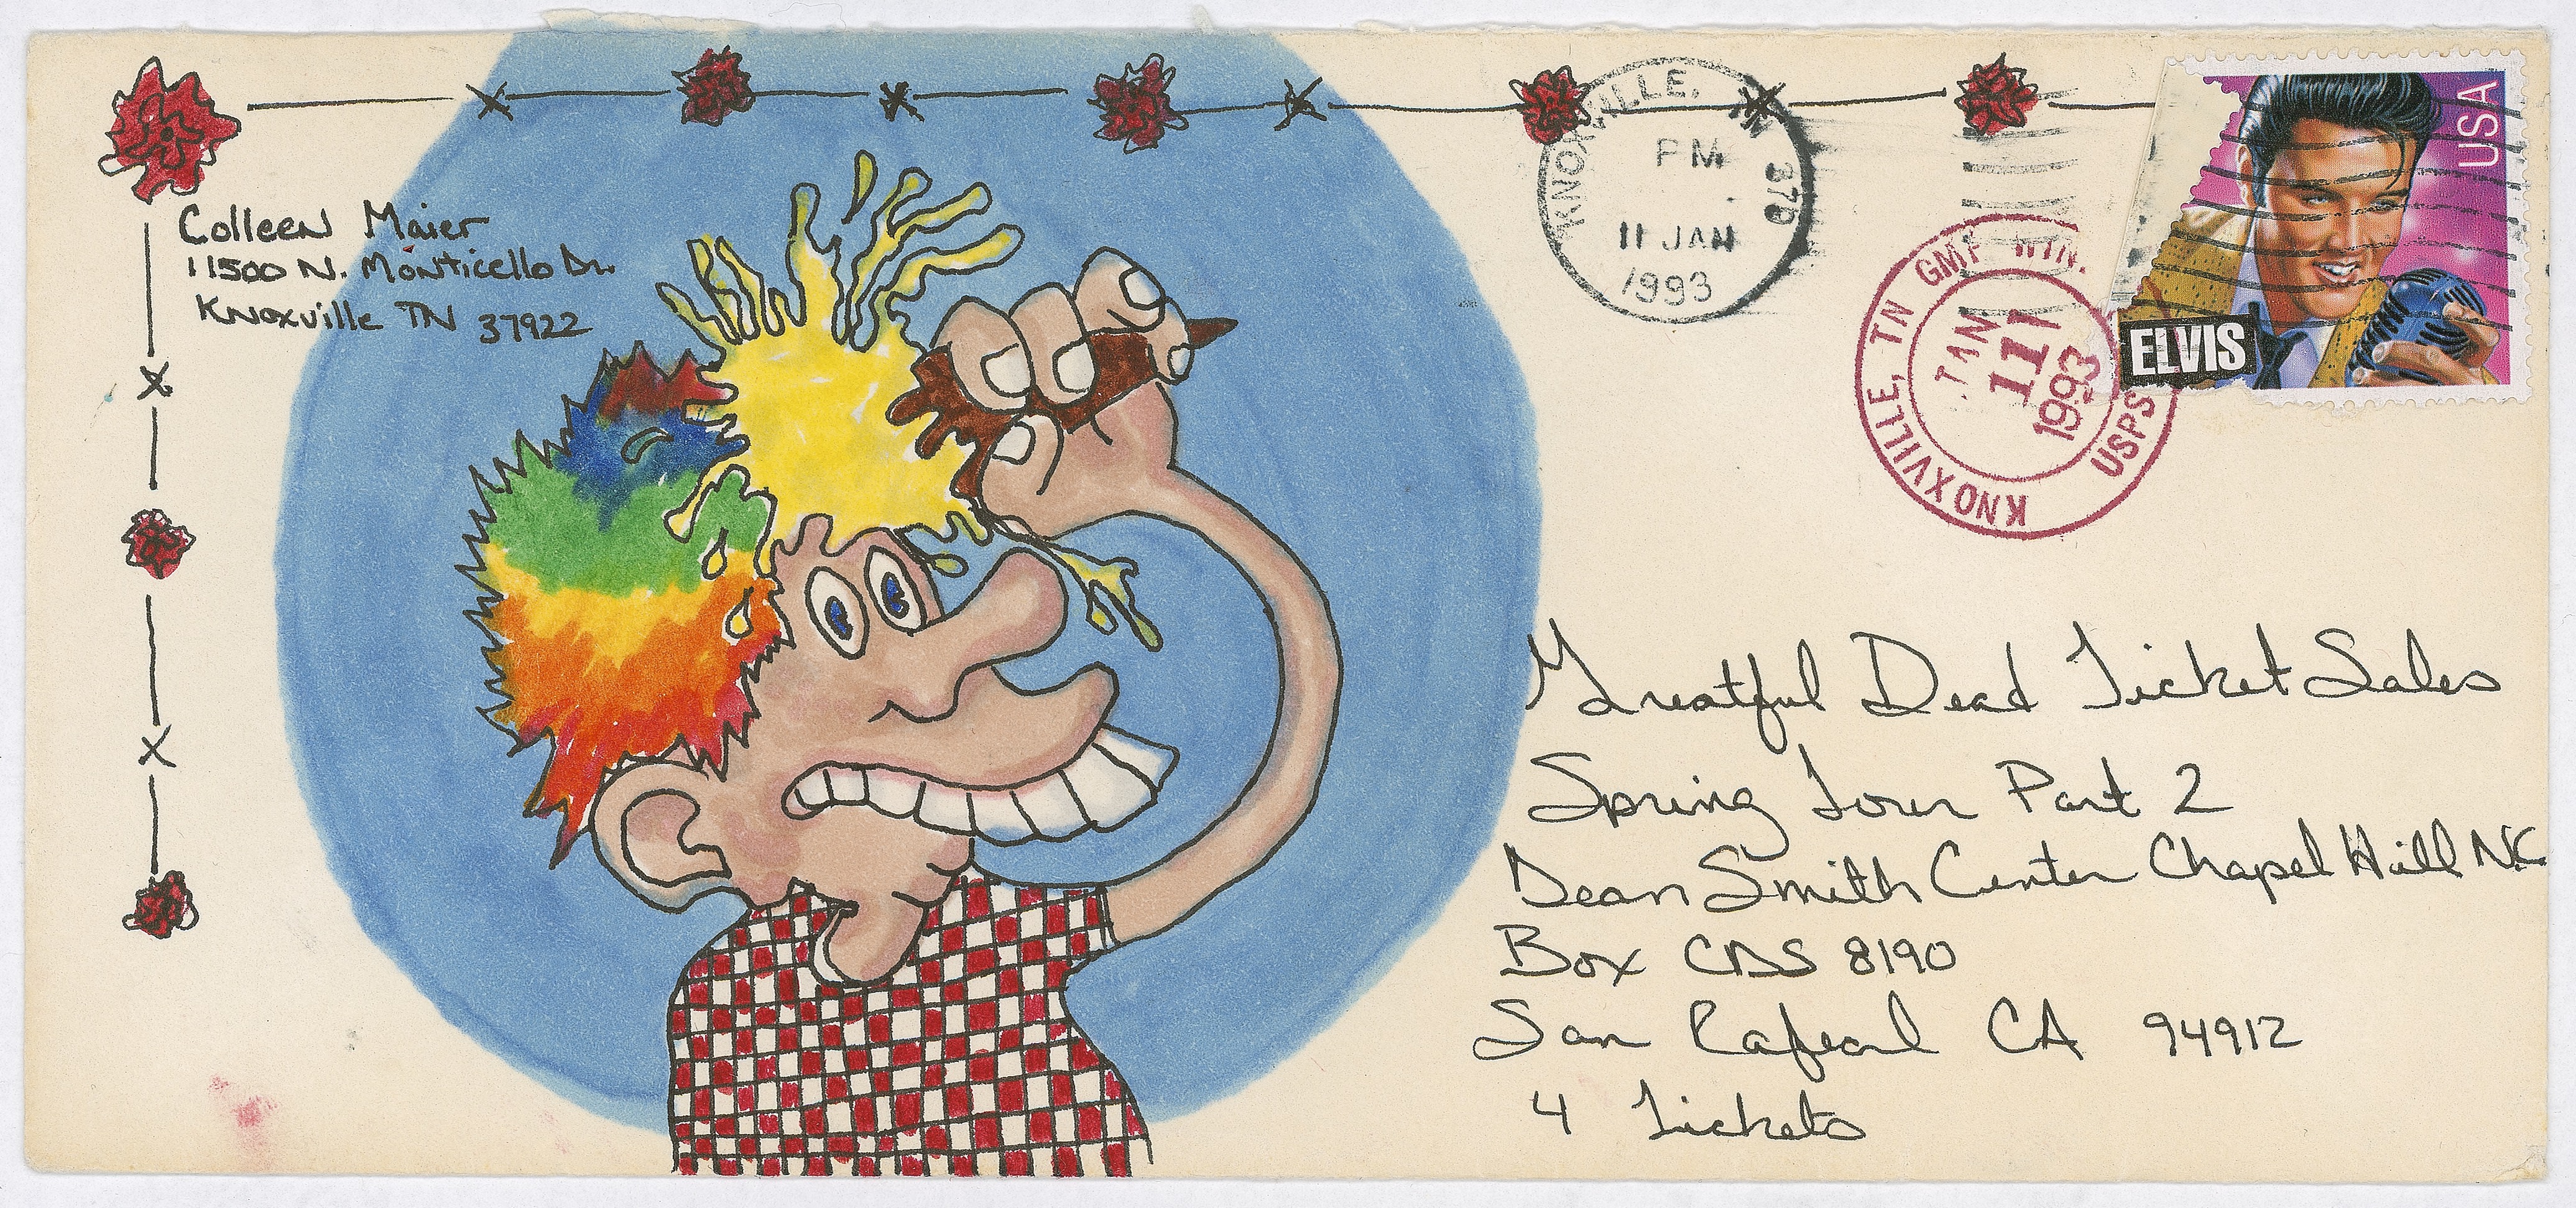 Colleen Maier
11500 N. Monticello Dr.
Knoxville TN 37922
KNOXVILLE, TN 379
PM
11 JAN
1993
KNOXVILLE, TN GMF WIN.
JAN
11
1993
USPS
USA
ELVIS
Greatful Dead Ticket Sales
Spring Tour Part 2
Dean Smith Center Chapel Hill NC
Box CDS 8190
San Rafeal CA 94912
4 Tickets